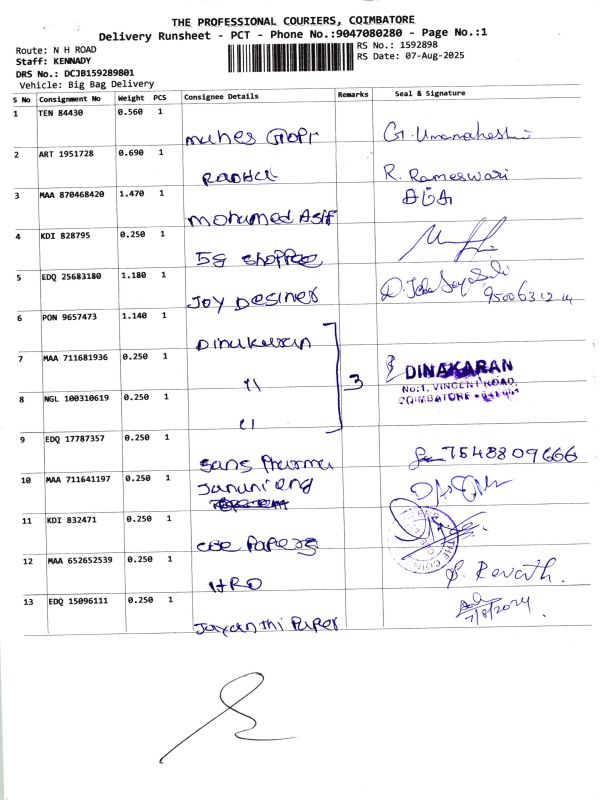 THE PROFESSIONAL COURIERS, COIMBATORE
Delivery Runsheet - PCT - Phone No.:9047080280 - Page No.:1
Route: N H ROAD
RS No.: 1592898
Staff: KENNADY
RS Date: 07-Aug-2025
DRS No.: DCJB159289801
Vehicle: Big Bag Delivery
S No Consignment No Weight PCS Consignee Details Remarks Seal & Signature
1 TEN 84430 0.560 1
mahes Gopi G. Umamaheshi
2 ART 1951728 0.690 1
Radha R. Rameswari
3 MAA 870468420 1.470 1
mohamed Asif
4 KDI 828795 0.250 1
5G Shoppee
5 EDQ 25683180 1.180 1
Joy Desiner 9500631214
6 PON 9657473 1.140 1
Dinakaran
7 MAA 711681936 0.250 1
" 3 DINAKARAN
No:1, VINCENT ROAD,
COIMBATORE
8 NGL 100310619 0.250 1
"
9 EDQ 17787357 0.250 1
Sans Pharma 7548809666
10 MAA 711641197 0.250 1
Janani eng
11 KDI 832471 0.250 1
cbe Papers
12 MAA 652652539 0.250 1
HRD S. Revath.
13 EDQ 15096111 0.250 1
Jayanthi Paper 7/8/2024